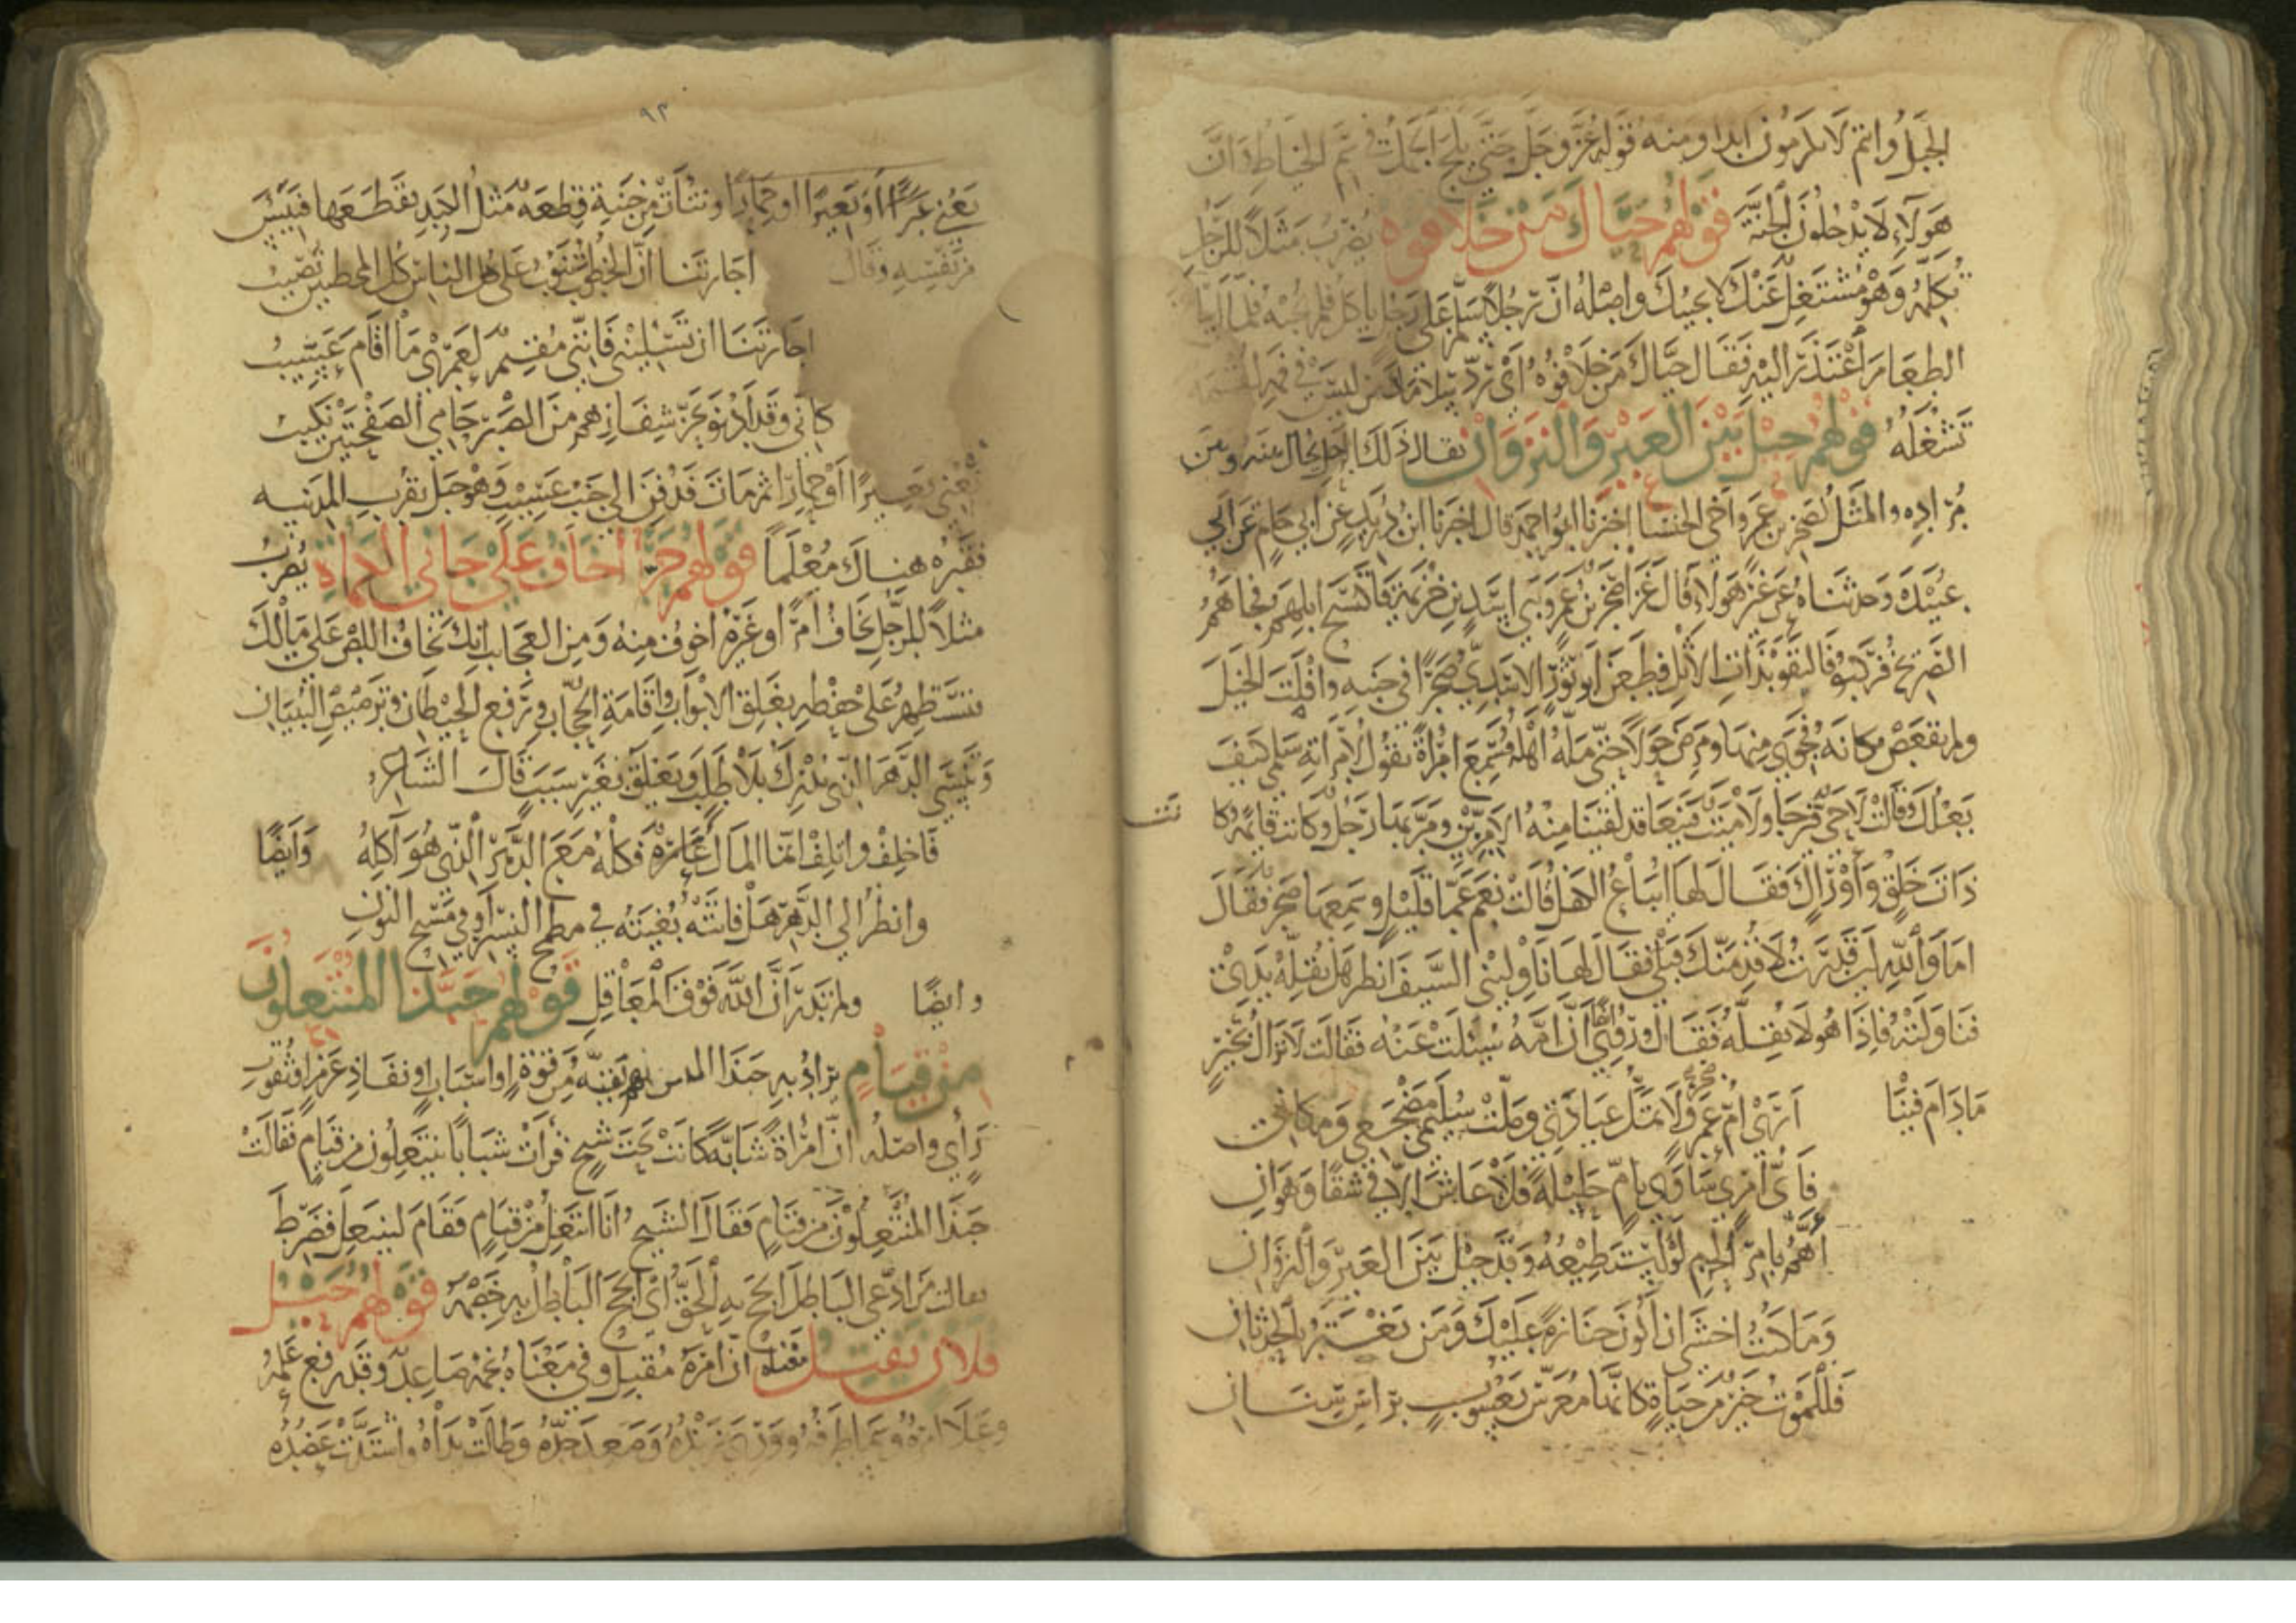 الجبل وانتم لا تلزمون ابدا ومنه قوله عز وجل حتى يلج الجمل في سم الخياط وان
هولاء لا يدخلون الجنة قولهم حياك من خلا فوه يضرب مثلا للرجل
تكلمه وهو مشتغل عنك لا يجيبك واصله ان رجلا سلم على رجل ياكل فلم يجبه فلما
الطعام اعتذر اليه فقال حياك من خلا فوه اي من ليس في فمه لقمة
تشغله قولهم حيل بين العير والنزوان يقال ذلك للرجل يحال بينه وبين
مراده والمثل لصخر بن عمرو اخي الخنسا اخبرنا ابو احمد قال اخبرنا ابن دريد عن ابي حاتم عن ابي
عبيدة وحدثناه عن غير هولاء قال غزا صخر بن عمرو بني اسد بن خزيمة فاكتسح ابلهم فجاهم
الصريخ فركبوا فالتقوا بذات الاثل فطعن ابو ثور الاسدي صخرا في جنبه وافلتت الخيل
ولم يقعص مكانه فجوي منها ومرض حولا حتى مله اهله فسمع امراة تقول لامراته سلمى كيف
بعلك قالت لا حي فيرجا ولا ميت فينعا قد لقينا منه الامرين ومر بها رجل وكانت قايمة وكا
نت
ذات خلق واوراك فقال لها ايباع الكفل قالت نعم عما قليل وسمعها صخر فقال
اما والله لين قدرت لاقدمنك قبلي فقال لها ناوليني السيف انظر هل تقله يدي
فناولته فاذا هو لا يقله فقال وروي ايضا ان امه سيلت عنه فقالت لا نزال بخير
ما دام فينا ارى ام عمرو لا تمل عيادتي وملت سليمى مضجعي ومكاني
فاي امري ساوى بام حليلة فلا عاش الا في شقا وهوان
اهم بامر الحزم لو استطيعه وقد حيل بين العير والنزوان
وما كنت اخشى ان اكون جنازة عليك ومن يغتر بالحدثان
فللموت خير من حياة كانها معرس يعسوب براس سنان
٩٢
يعني عيرا او بعيرا او حمارا ونتات من جنبه قطعة مثل الكبد فقطعها فييس
من نفسه وقال اجارتنا ان الخطوب تنوب على الناس كل المخطيين تصيب
اجارتنا ان تسليني فانني مقيم لعمري ما اقام عسيب
كاني وقد ادنوا لحز شفارهم من الصبر دامي الصفحتين نكيب
يعني بعيرا او حمارا ثم مات فدفن الى جنب عسيب وهو جبل بقرب المدينه
فقبره هناك معلما قولهم حرا اخاف على جاني الكماة يضرب
مثلا للرجل يخاف امرا وغيره اخوف منه ومن العجايب انك تخاف اللص على مالك
فتستظهر على حفظه بغلق الابواب واقامة الحجاب ورفع الحيطان وترصيص البنيان
وتنسى الدهر الذي يدرك بلا طلب ويعلق بغير سبب قال الشاعر
فاخلف واتلف انما المال عارة فكله مع الدهر الذي هو آكله وايضا
وانظر الى الدهر هل فاتته بغيته في مطمح النسر او في مسبح النون
وايضا ولم تدر ان الله فوق المعاقل قولهم حبذا المنتعلون
من قيام يراد به حبذا بقية من قوة او اسباب او نفاذ عزم او ثقوب
راي واصله ان امراة شابة كانت تحت شيخ فرات شبابا ينتعلون من قيام فقالت
حبذا المنتعلون من قيام فقال الشيخ انا انتعل من قيام فقام لينتعل فضرط
فقالت من ادعى الباطل انجح به الحق اي انجح الباطل به خصمه قولهم حبيل
فلان يفتل معناه ان امره مقبل وفي معناه نجمه صاعد وقد رفع علمه
وعلا امره وصعد جده وطالت يداه واشتدت عضده